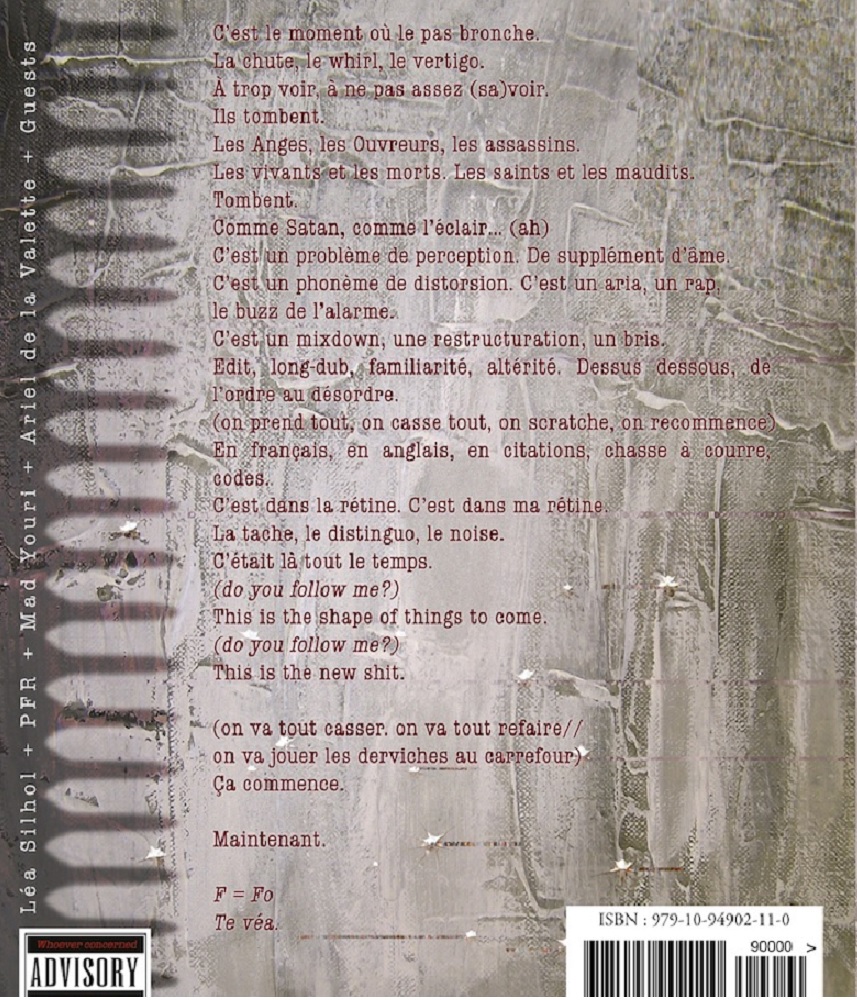 C'est le moment où le pas bronche.
La chute, le whirl, le vertigo.
À trop voir, à ne pas assez (sa)voir.
Ils tombent.
Les Anges, les Ouvreurs, les assassins.
Les vivants et les morts. Les saints et les maudits.
Tombent.
Comme Satan, comme l'éclair... (ah)
C'est un problème de perception. De supplément d'âme.
C'est un phonème de distorsion. C'est un aria, un rap,
le buzz de l'alarme.
C'est un mixdown, une restructuration, un bris.
Edit, long-dub, familiarité, altérité. Dessus dessous, de
l'ordre au désordre.
(on prend tout, on casse tout, on scratche, on recommence)
En français, en anglais, en citations, chasse à courre,
codes.
C'est dans la rétine. C'est dans ma rétine.
La tache, le distinguo, le noise.
C'était là tout le temps.
(do you follow me?)
This is the shape of things to come.
(do you follow me?)
This is the new shit.
(on va tout casser. on va tout refaire//
on va jouer les derviches au carrefour)
Ça commence.
Maintenant.
F = Fo
Te véa.
Léa Silhol + PFR + Mad Youri + Ariel de la Valette + Guests
Whoever concerned
ADVISORY
ISBN : 979-10-94902-11-0
90000 >